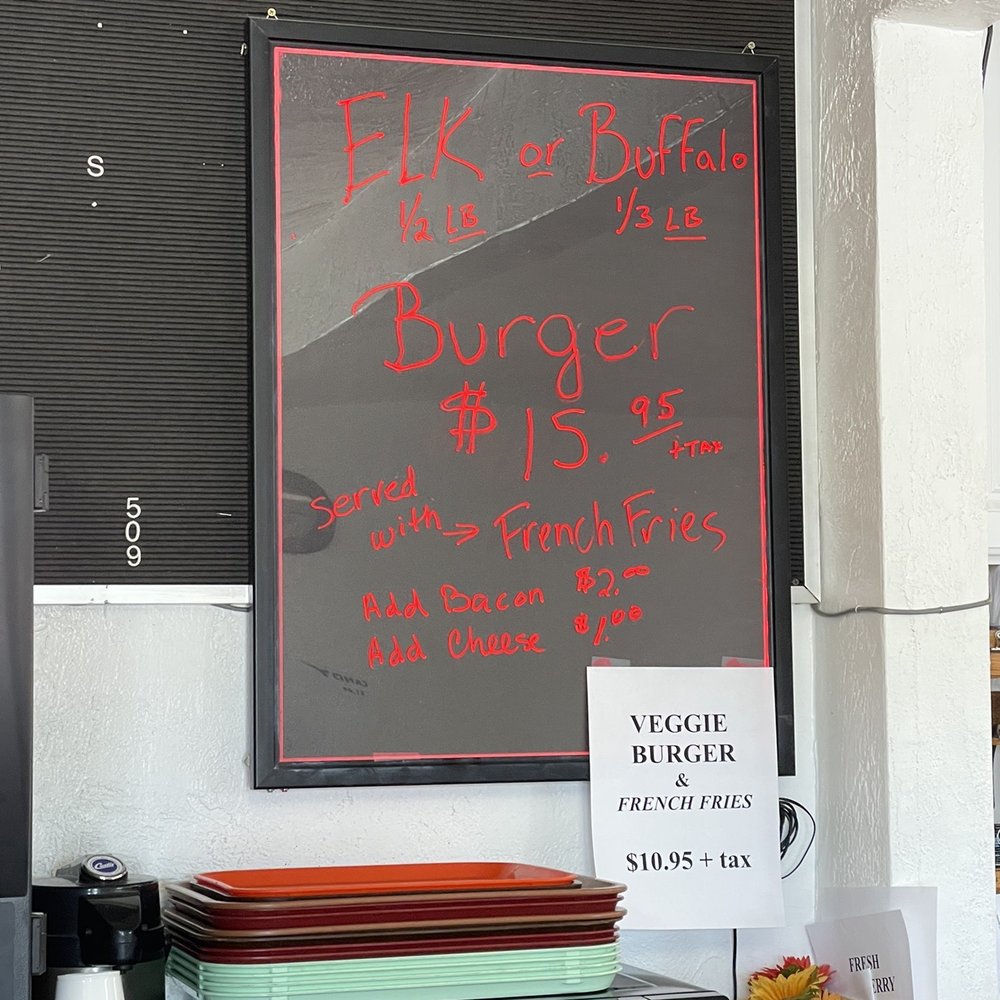 S
5
0
9
ELK or Buffalo
1/2 LB 1/3 LB
Burger
$15.95
+TAX
Served
with → French Fries
Add Bacon $2.00
Add Cheese $1.00
VEGGIE
BURGER
&
FRENCH FRIES
$10.95 + tax
FRESH